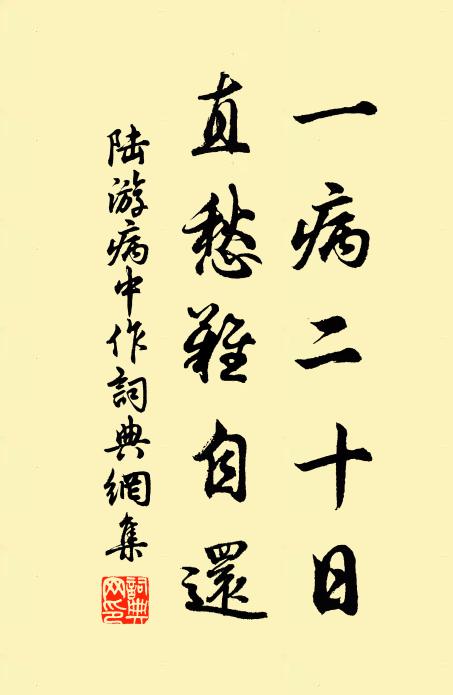 一病二十日
直愁難自還
陸游病中作詞典網集
詞典網印